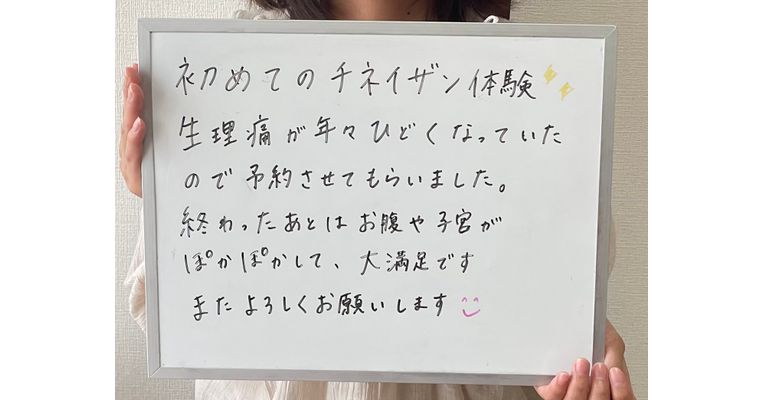 初めてのチネイザン体験
生理痛が年々ひどくなっていた
ので予約させてもらいました。
終わったあとはお腹や子宮が
ぽかぽかして、大満足です
またよろしくお願いします